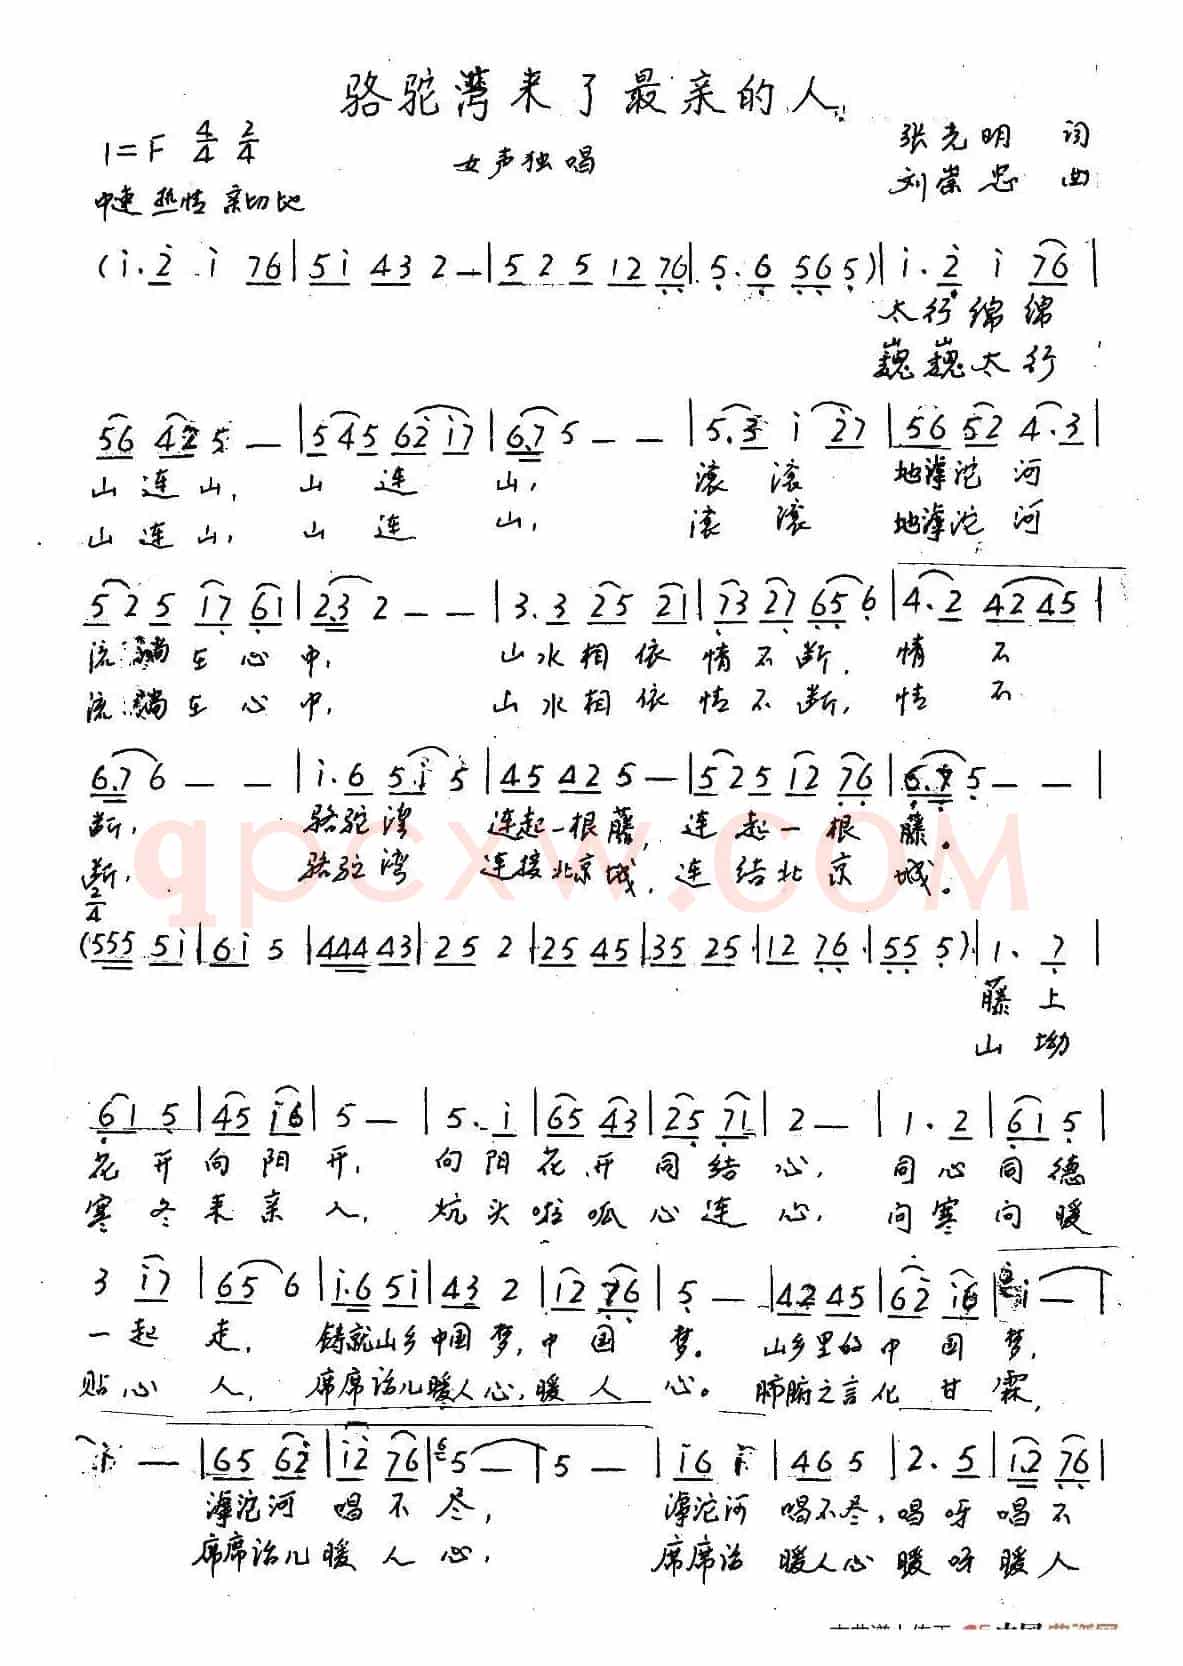 骆驼湾来了最亲的人
1=F 4/4 2/4
女声独唱
张光明 词
刘崇忠 曲
中速 热情 亲切地
(i. 2 i 76 | 5i 43 2 — | 5 2 5 12 76 | 5. 6 56 5) | i. 2 i 76 |
太行绵绵
巍巍太行
56 42 5 — | 545 62 i7 | 6.7 5 — — | 5.3 i 27 | 56 52 4.3 |
山连山, 山连山, 滚滚地滹沱河
山连山, 山连山, 滚滚地滹沱河
5 2 5 17 61 | 2.3 2 — — | 3.3 25 21 | 73 27 65 6 | 4.2 42 45 |
流淌在心中, 山水相依情不断, 情不
流淌在心中, 山水相依情不断, 情不
6.7 6 — — | i.6 5i 5 | 45 42 5 — | 525 12 76 | 6.7 5 — — |
断, 骆驼湾 连起一根藤, 连起一根藤。
断, 骆驼湾 连接北京城, 连结北京城。
2/4
(555 5i | 6i 5 | 444 43 | 25 2 | 25 45 | 35 25 | 12 76 | 55 5) | 1. 7 |
藤上
山坳
61 5 | 45 i6 | 5 — | 5. i | 65 43 | 25 71 | 2 — | 1. 2 | 61 5 |
花开向阳开, 向阳花开同结心, 同心同德
寒冬来亲人, 炕头啦呱心连心, 问寒问暖
3 i7 | 65 6 | i.6 5i | 43 2 | 12 76 | 5 — | 42 45 | 62 i6 | i — |
一起走, 铸就山乡中国梦, 中国梦。 山乡里的中国梦,
贴心人, 席席话儿暖人心, 暖人心。 肺腑之言化甘霖,
i — | 65 62 | i2 76 | 5 — | 5 — | i6 i | 46 5 | 2. 5 | 12 76 |
滹沱河唱不尽, 滹沱河唱不尽, 唱呀唱不
席席话儿暖人心, 席席话暖人心暖呀暖人
qpcxw.com